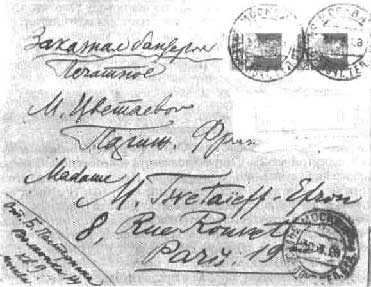 Заказная бандероль
Печатное
М. Цветаевой
Париж. Фран
Madame
M. Tsvetaieff-Efron
8, Rue Rouvet
Paris 19
от Б. Пастернака
Волхонка 14
кв 9
МОСКВА